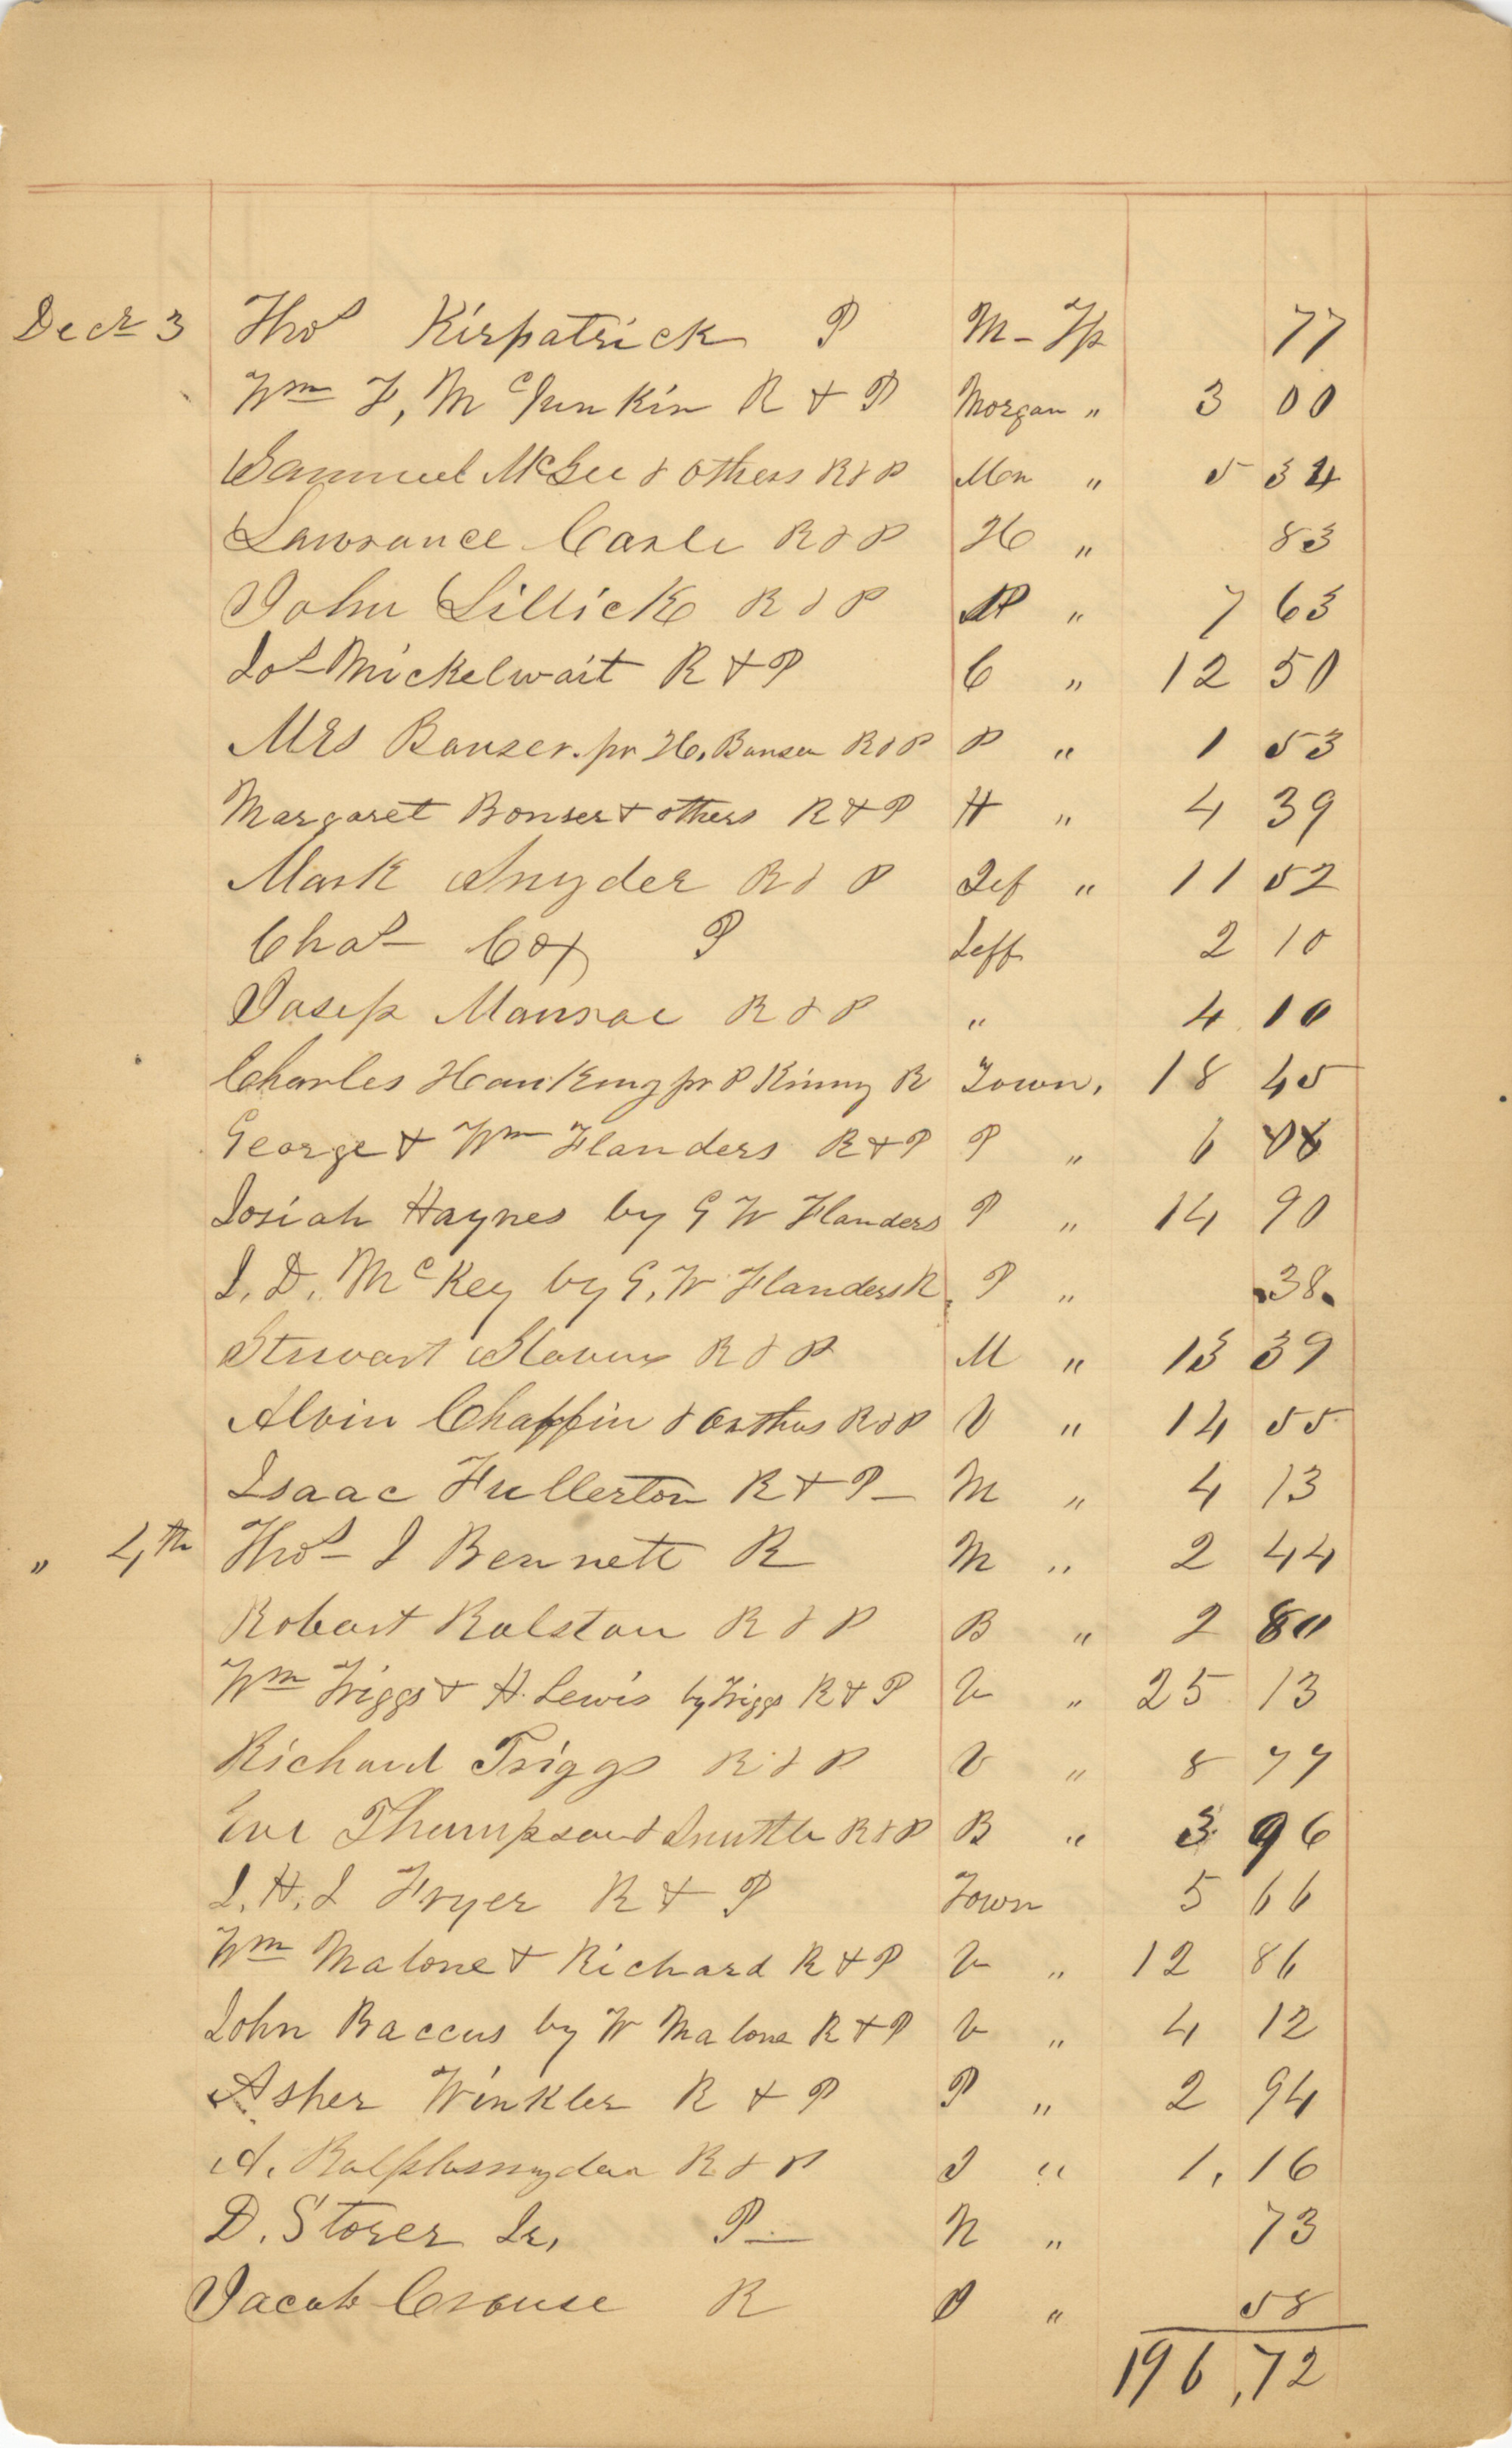 Decr 3 Thos Kirpatrick P M - Tp 77
Wm F, McJunkin R & P Morgan " 3 00
Samuel McGee & others R & P Mon " 5 34
Lawrance Carle R & P H " 83
John Lillick R & P P " 7 63
Jos Mickelwait R & P C " 12 50
Mrs Bonser. pr H. Bonser R & P P " 1 53
Margaret Bonser & others R & P H " 4 39
Mark Snyder R & P Jef " 11 52
Chas Cox P Jeff 2 10
Josep Monroe R & P " 4 10
Charles Hawking pr P Kinny R Town, 18 45
George & Wm Flanders R & P P " 6
Josiah Haynes by G W Flanders P " 14 90
J. D. McKey by G. W Flanders R. P " .38.
Stuvart R & P M " 13 39
Alvin Chaffin & Orthus R & P V " 14 55
Isaac Fullerton R & P - M " 4 13
" 4th Thos J Bennett R M " 2 44
Robart Ralston R & P B " 2 80
Wm Triggs & H. Lewis by Triggs R & P V " 25 13
Richard Triggs R & P V " 8 77
Eve Thumpson & R & P B " 3 96
J. H. J Fryer R & P Town 5 66
Wm Malone & Richard R & P V " 12 86
John Baccus by W Malone R & P V " 4 12
Asher Winkler R & P P " 2 94
A. Ralphsnyder R & P J " 1, 16
D. Storer Jr, P - N " 73
Jacob Crouse R P " 58
196,72